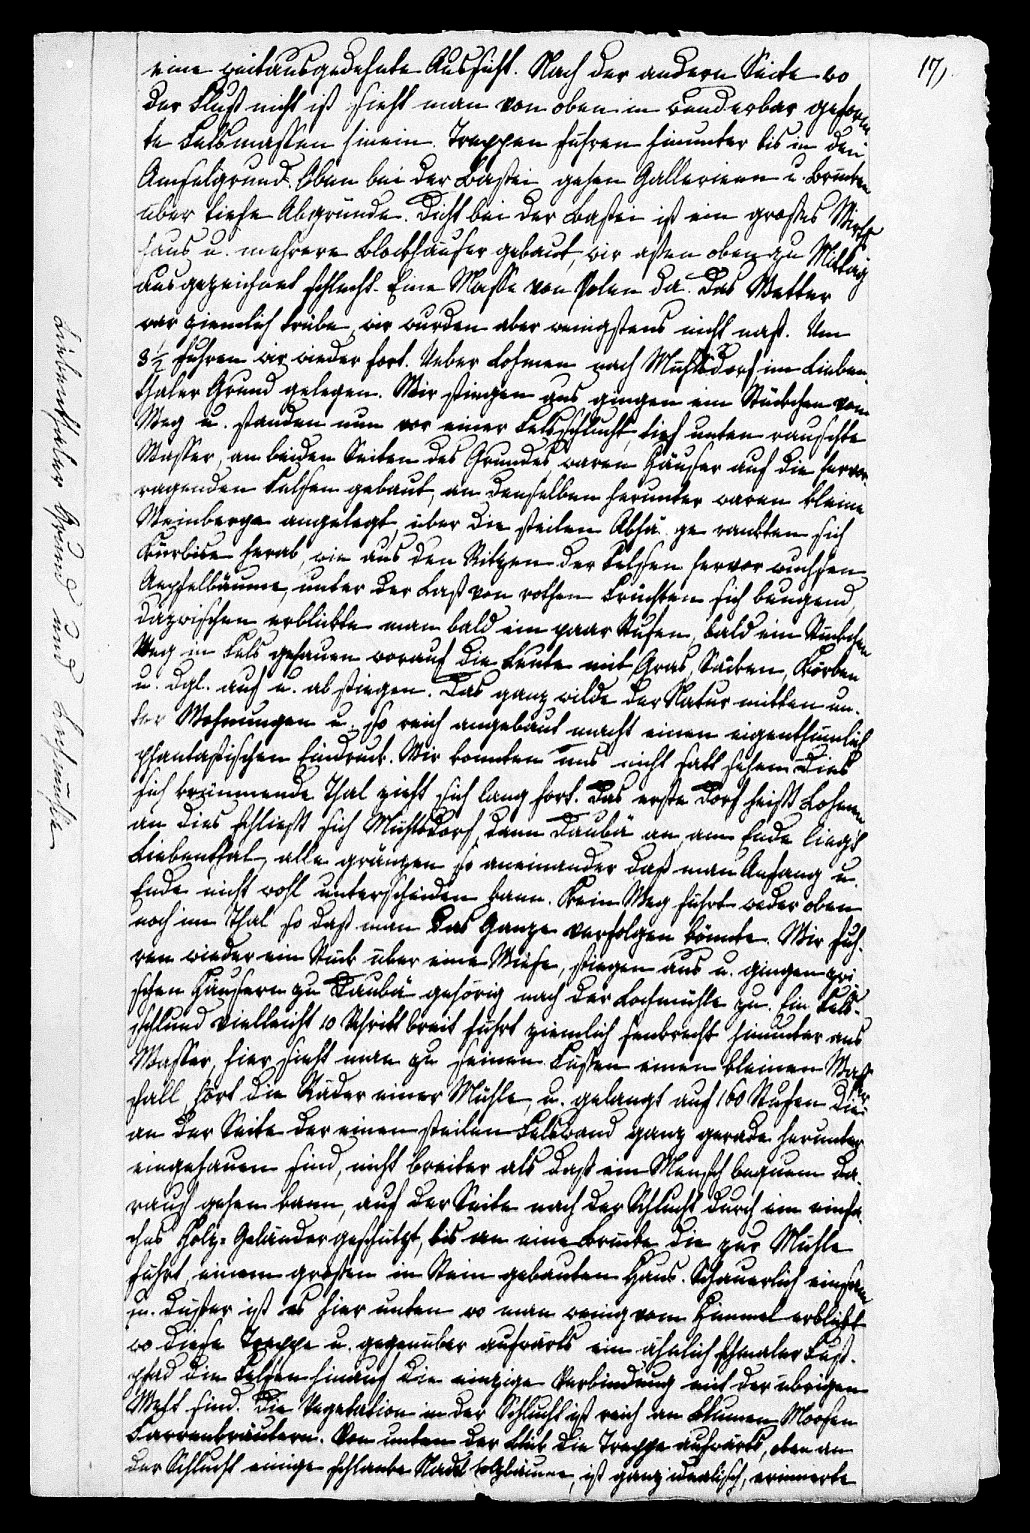 17,
eine weitausgedehnte Aussicht. Nach der andern Seite wo
der Fluß nicht ist sieht man von oben in wunderbar geform
te Felsmassen hinein. Treppen führen hinunter bis in den
Amselgrund. Oben bei der Bastei gehen Gallerieen u. Brücken
über tiefe Abgründe. Dicht bei der Bastei ist ein großes Wirths
haus u. mehrere Blockhäuser gebaut, wir aßen oben zu Mittag
ausgezeichnet schlecht. Eine Masse von Polen da. Das Wetter
war ziemlich trübe, wir wurden aber wenigstens nicht naß. Um
3½ fuhren wir wieder fort. Ueber Lohmen nach Mühlsdorf im Lieben
thaler Grund gelegen. Wir stiegen aus gingen ein Stückchen vom
Weg u. standen nun vor einer Felsschlucht, tief unten rauschte
Wasser, an beiden Seiten des Grundes waren Häuser auf die hervor
ragenden Felsen gebaut, an denselben herunter waren kleine
Weinberge angelegt, über die steilen Abhä ge rankten sich
Kürbise herab, wie aus den Ritzen der Felsen hervor wuchsen
Aepfelbäume, unter der Last von rothen Früchten sich beugend,
dazwischen erblickte man bald ein paar Stufen, bald ein Stückchen
Weg in Fels gehauen worauf die Leute mit Gras, Säcken, Körben
u. dgl. auf u. ab stiegen. Das ganz wilde der Natur mitten un-
ter Wohnungen u. so reich angebaut macht einen eigenthümlich
phantastischen Eindruck. Wir konnten uns nicht satt sehen. Dies
sich krümmende Thal zieht sich lang fort. Das erste Dorf heißt Lohmen
an dies schließt sich Mühlsdorf, dann Daubä an, am Ende liegt
Liebenthal, alle gränzen so aneinander daß man Anfang u.
Ende nicht wohl unterscheiden kann. Kein Weg führt weder oben
noch im Thal so daß man das Ganze verfolgen könnte. Wir fuh-
ren wieder ein Stück über eine Wiese, stiegen aus u. gingen zwi
schen Häusern zu Daubä gehörig nach der Lochmühle zu. Ein Fels-
schlund vielleicht 10 Schritt breit führt ziemlich senkrecht hinunter ans
Wasser, hier sieht man zu seinen Füssen einen kleinen Wasser
fall, hört die Räder einer Mühle, u. gelangt auf 160 Stufen die
an der Seite der einen steilen Felswand ganz gerade herunter
eingehauen sind, nicht breiter als daß ein Mensch bequem da-
rauf gehen kann, auf der Seite nach der Schlucht durch ein einfa
ches Holz-Geländer geschützt, bis an eine Brücke die zur Mühle
führt, einem großen in Stein gebauten Haus. Schauerlich einsam
u. düster ist es hier unten wo man wenig vom Himmel erblickt
wo diese Treppe u. gegenüber aufwärts ein ähnlich schmaler Fuß-
pfad die Felsen hinauf die einzige Verbindung mit der übrigen
Welt sind. Die Vegetation in der Schlucht ist reich an Blumen, Moosen
Farrenkräutern. Von unten der Blick die Treppe aufwärts, oben an
der Schlucht einige schlanke Nadelholzbäume, ist ganz idealisch, erinnerte
Liebenthaler Grund und Lochmühle